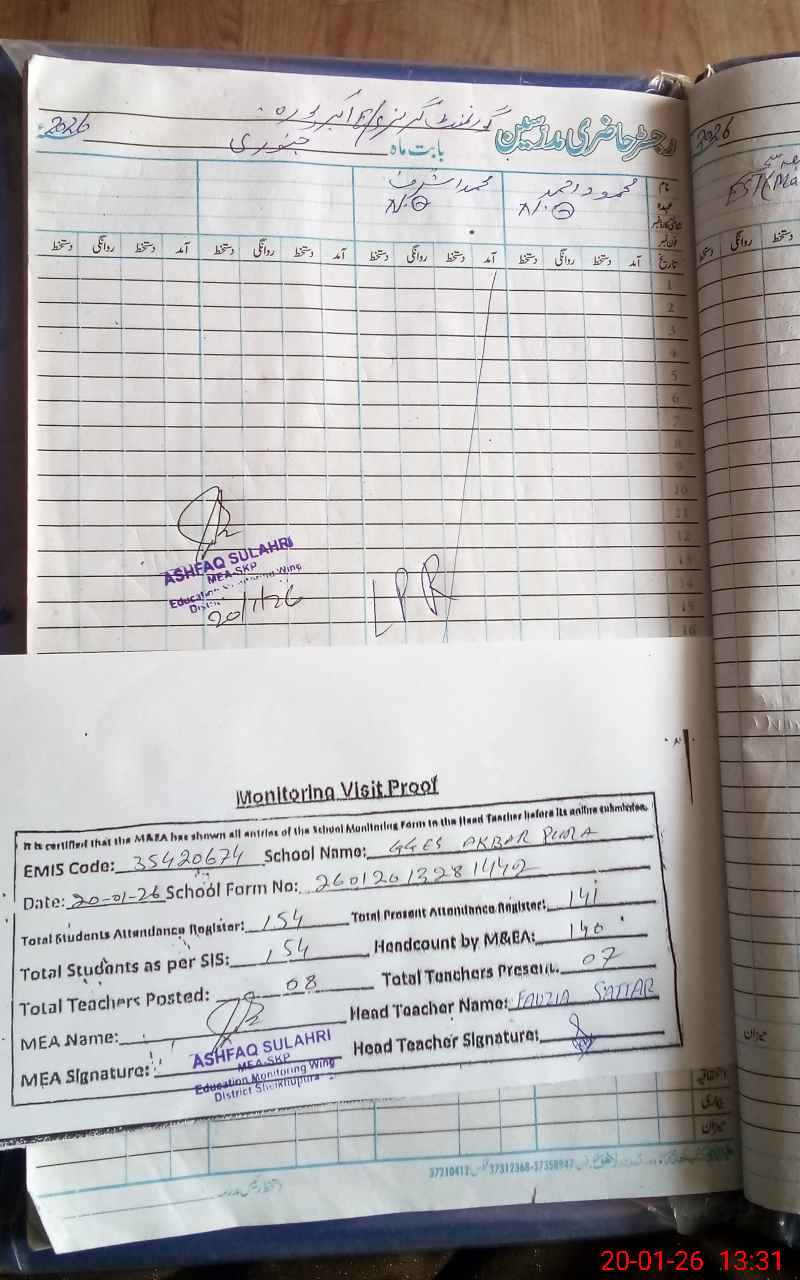 گورنمنٹ گرلز e/s اکبر پورہ
رجسٹر حاضری مدرسین
2026
بابت ماہ جنوری
2026
نام
محمود احمد
محمد اشرف
عہدہ
N.Q
فون نمبر
تاریخ آمد دستخط روانگی دستخط آمد دستخط روانگی دستخط آمد دستخط روانگی دستخط آمد دستخط روانگی دستخط
1
2
3
4
5
6
7
8
9
10
11
12
13
14
15
16
LPR
ASHFAQ SULAHRI
MEA-SKP
Education Monitoring Wing
20/1/26
Monitoring Visit Proof
It is certified that the M&EA has shown all entries of the School Monitoring Form to the Head Teacher before its online submission.
EMIS Code: 35420674 School Name: GGES AKBAR PURA
Date: 20-01-26 School Form No: 26012013281442
Total Students Attendance Register: 154 Total Present Attendance Register: 141
Total Students as per SIS: 154 Headcount by M&EA: 140
Total Teachers Posted: 08 Total Teachers Present: 07
MEA Name: Head Teacher Name: FAUZIA SATTAR
MEA Signature: Head Teacher Signature:
ASHFAQ SULAHRI
MEA-SKP
Education Monitoring Wing
District Sheikhupura
میزان
اتفاقیہ
بیماری
میزان
37210412 37312368-37358947
دستخط رئیس مدرسہ
20-01-26 13:31